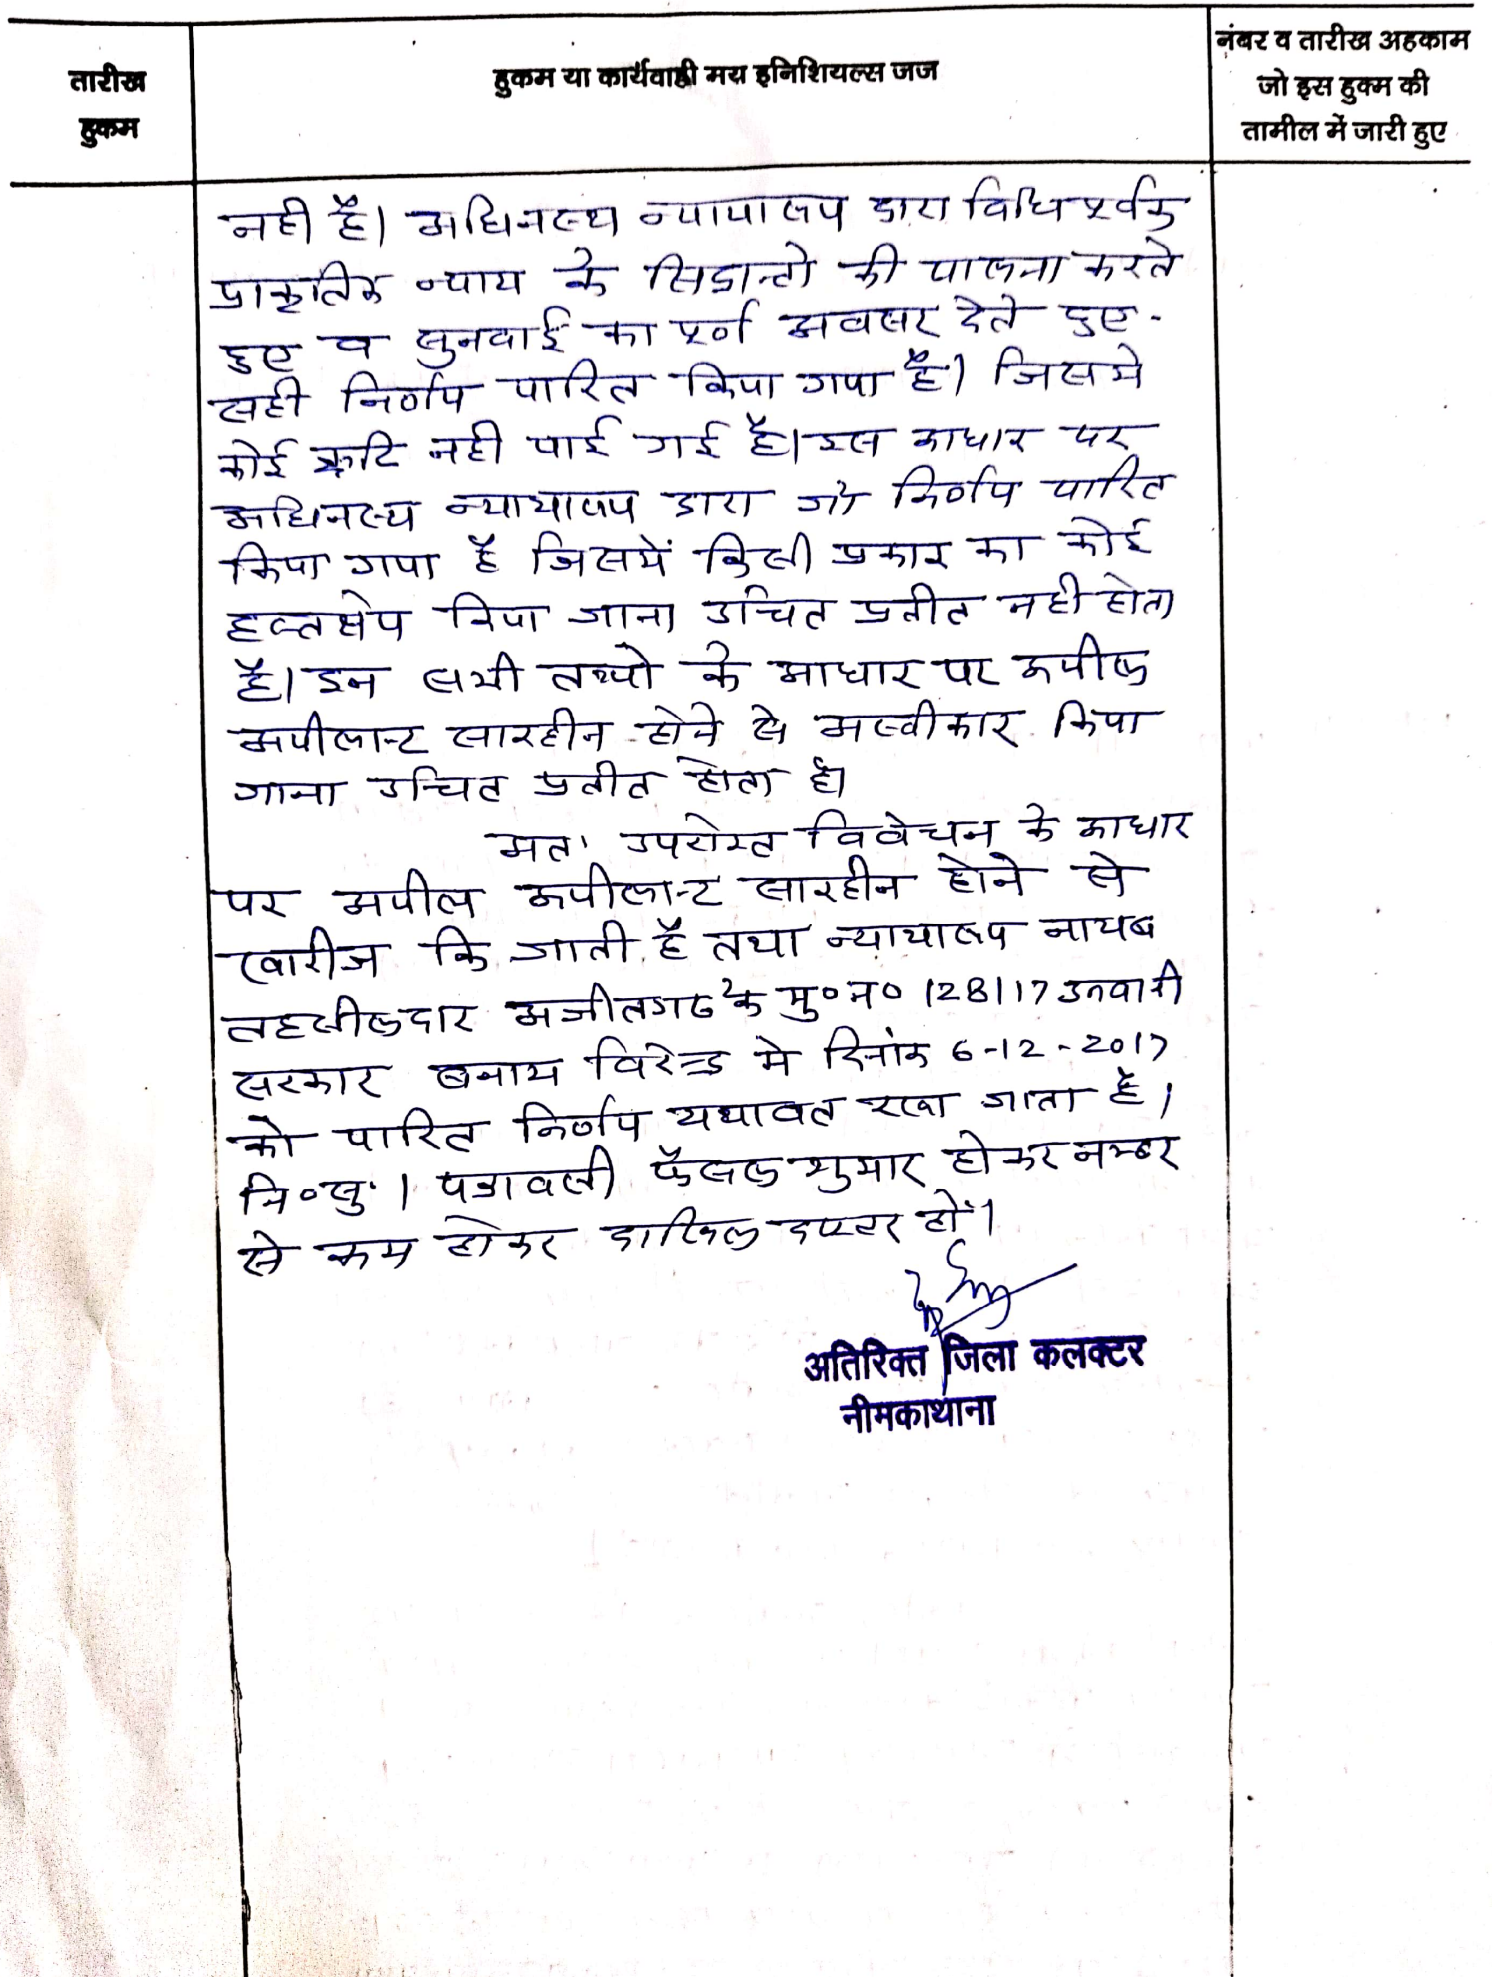 तारीख
हुकम
हुकम या कार्यवाही मय इनिशियल्स जज
नंबर व तारीख अहकाम
जो इस हुक्म की
तामील में जारी हुए
नही है। अधिनस्थ न्यायालय द्वारा विधिपूर्वक
प्राकृतिक न्याय के सिद्धान्तो की पालना करते
हुए व सुनवाई का पूर्ण अवसर देते हुए -
सही निर्णय पारित किया गया है। जिसमे
कोई त्रुटि नही पाई गई है। इस आधार पर
अधिनस्थ न्यायालय द्वारा जो निर्णय पारित
किया गया है जिसमें किसी प्रकार का कोई
हस्तक्षेप किया जाना उचित प्रतीत नही होता
है। इन सभी तथ्यो के आधार पर अपील
अपीलान्ट सारहीन होने से अस्वीकार किया
जाना उचित प्रतीत होता है।
अतः उपरोक्त विवेचन के आधार
पर अपील अपीलान्ट सारहीन होने से
खारीज कि जाती है तथा न्यायालय नायब
तहसीलदार अजीतगढ के मु० न० 128/17 उनवानी
सरकार बनाम विरेन्द्र मे दिनांक 6-12-2017
को पारित निर्णय यथावत रखा जाता है।
नि०सु। पत्रावली फैसल शुमार होकर नम्बर
से कम होकर दाखिल दफ्तर हों।
अतिरिक्त जिला कलक्टर
नीमकाथाना